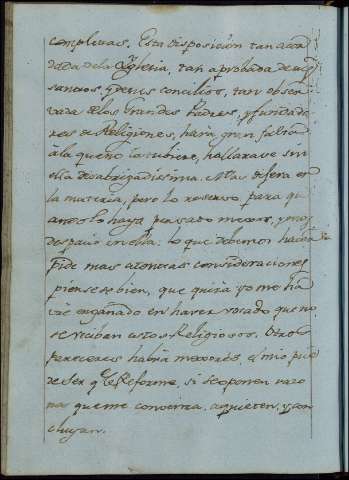 completas. Esta disposicion tan acor
dada de la Yglesia, tan aprobada de sus
santos, y de sus concilios, tan obser
vada de los Grandes Padres, y fundado
res de Religiones, hará gran falta
à la que no la tubiere, hallarase sin
ella desabrigadissima. Mas difera es
la materia, pero lo reservo para qu
ando lo haya pensado mejor, y mas
despacio en ella: lo que debemos hacer
pide mas atentas consideraciones
piensese bien, que quizá yo me ha
vré engañado en haver votado que no
se reciban estos Religiosos. Otros
pareceres habrá mejores, el mio pue
de ser q.e se Reforme, si se oponen razo
nes que me convenza, aquieten, y con
cluyan.